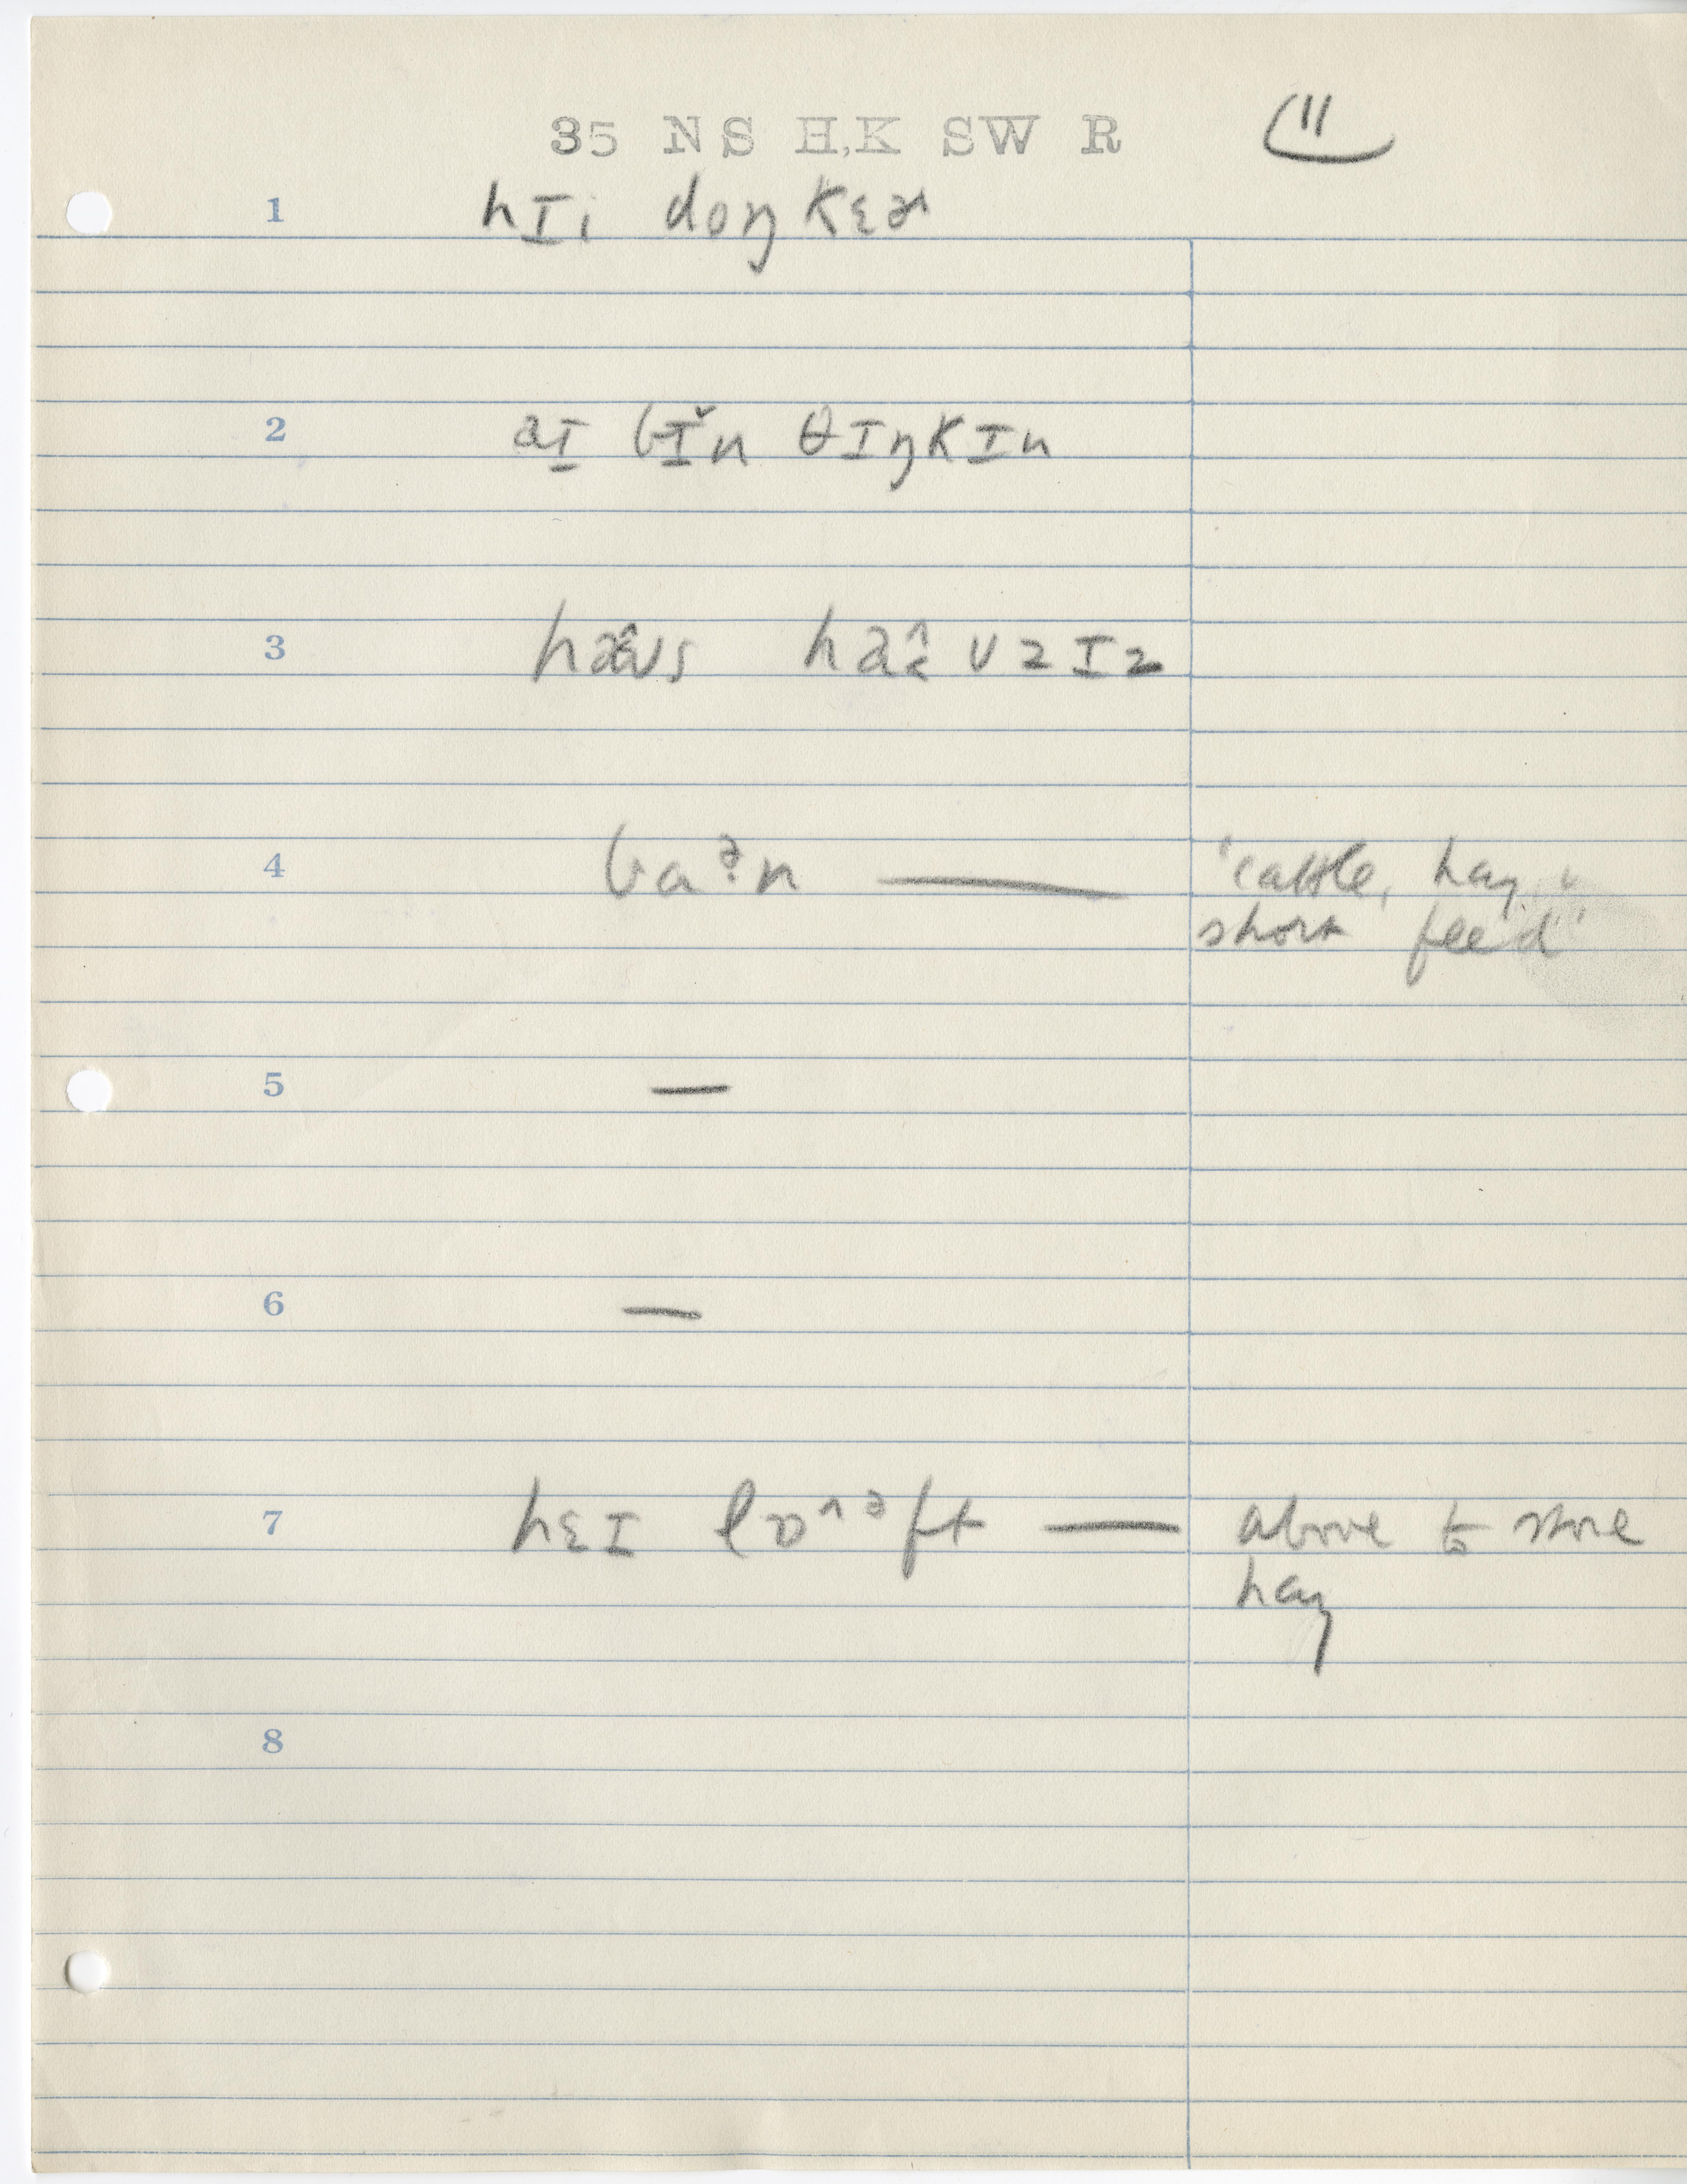 35 NS H,K SW R 11
1 hɪi doŋ kɛɚ
2 aɪ bɪ̌n θɪŋkɪn
3
4 baᵊn — 'cattle, hay,
short feed'
5 —
6 —
7 hɛɪ lɒ^ᵊft — above to store
hay
8